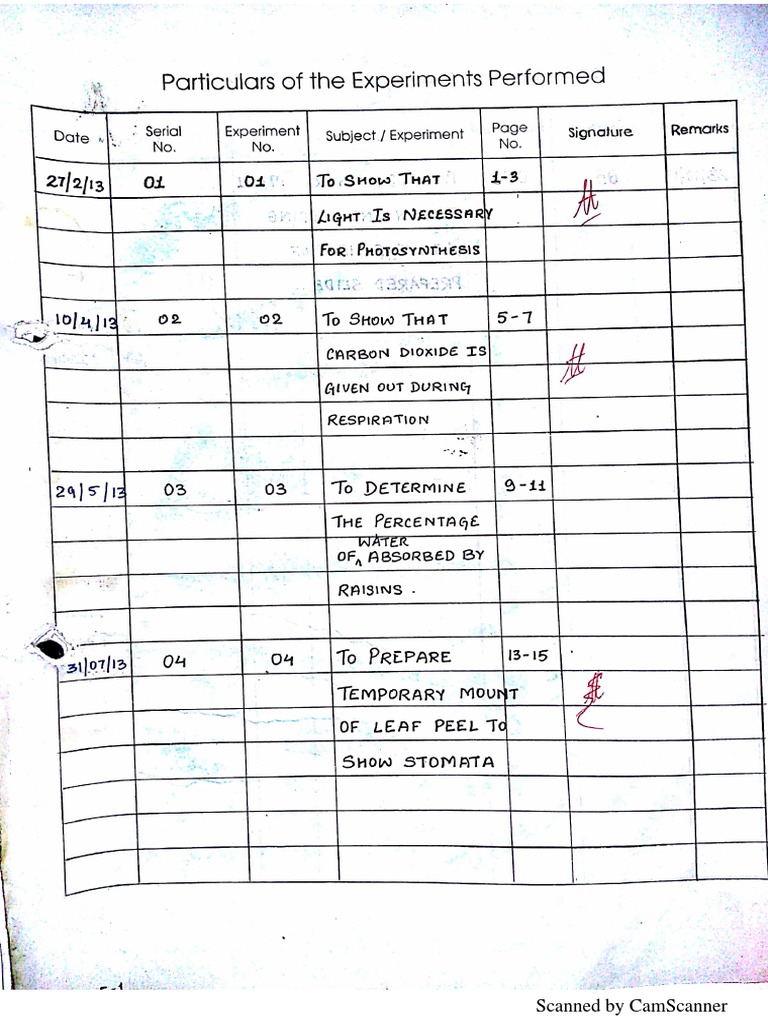 Particulars of the Experiments Performed
Date Serial No. Experiment No. Subject / Experiment Page No. Signature Remarks
27/2/13 01 01 TO SHOW THAT 1-3
LIGHT IS NECESSARY
FOR PHOTOSYNTHESIS
10/4/13 02 02 TO SHOW THAT 5-7
CARBON DIOXIDE IS
GIVEN OUT DURING
RESPIRATION
29/5/13 03 03 TO DETERMINE 9-11
THE PERCENTAGE
WATER
OF ABSORBED BY
RAISINS.
31/07/13 04 04 TO PREPARE 13-15
TEMPORARY MOUNT
OF LEAF PEEL TO
SHOW STOMATA
Scanned by CamScanner